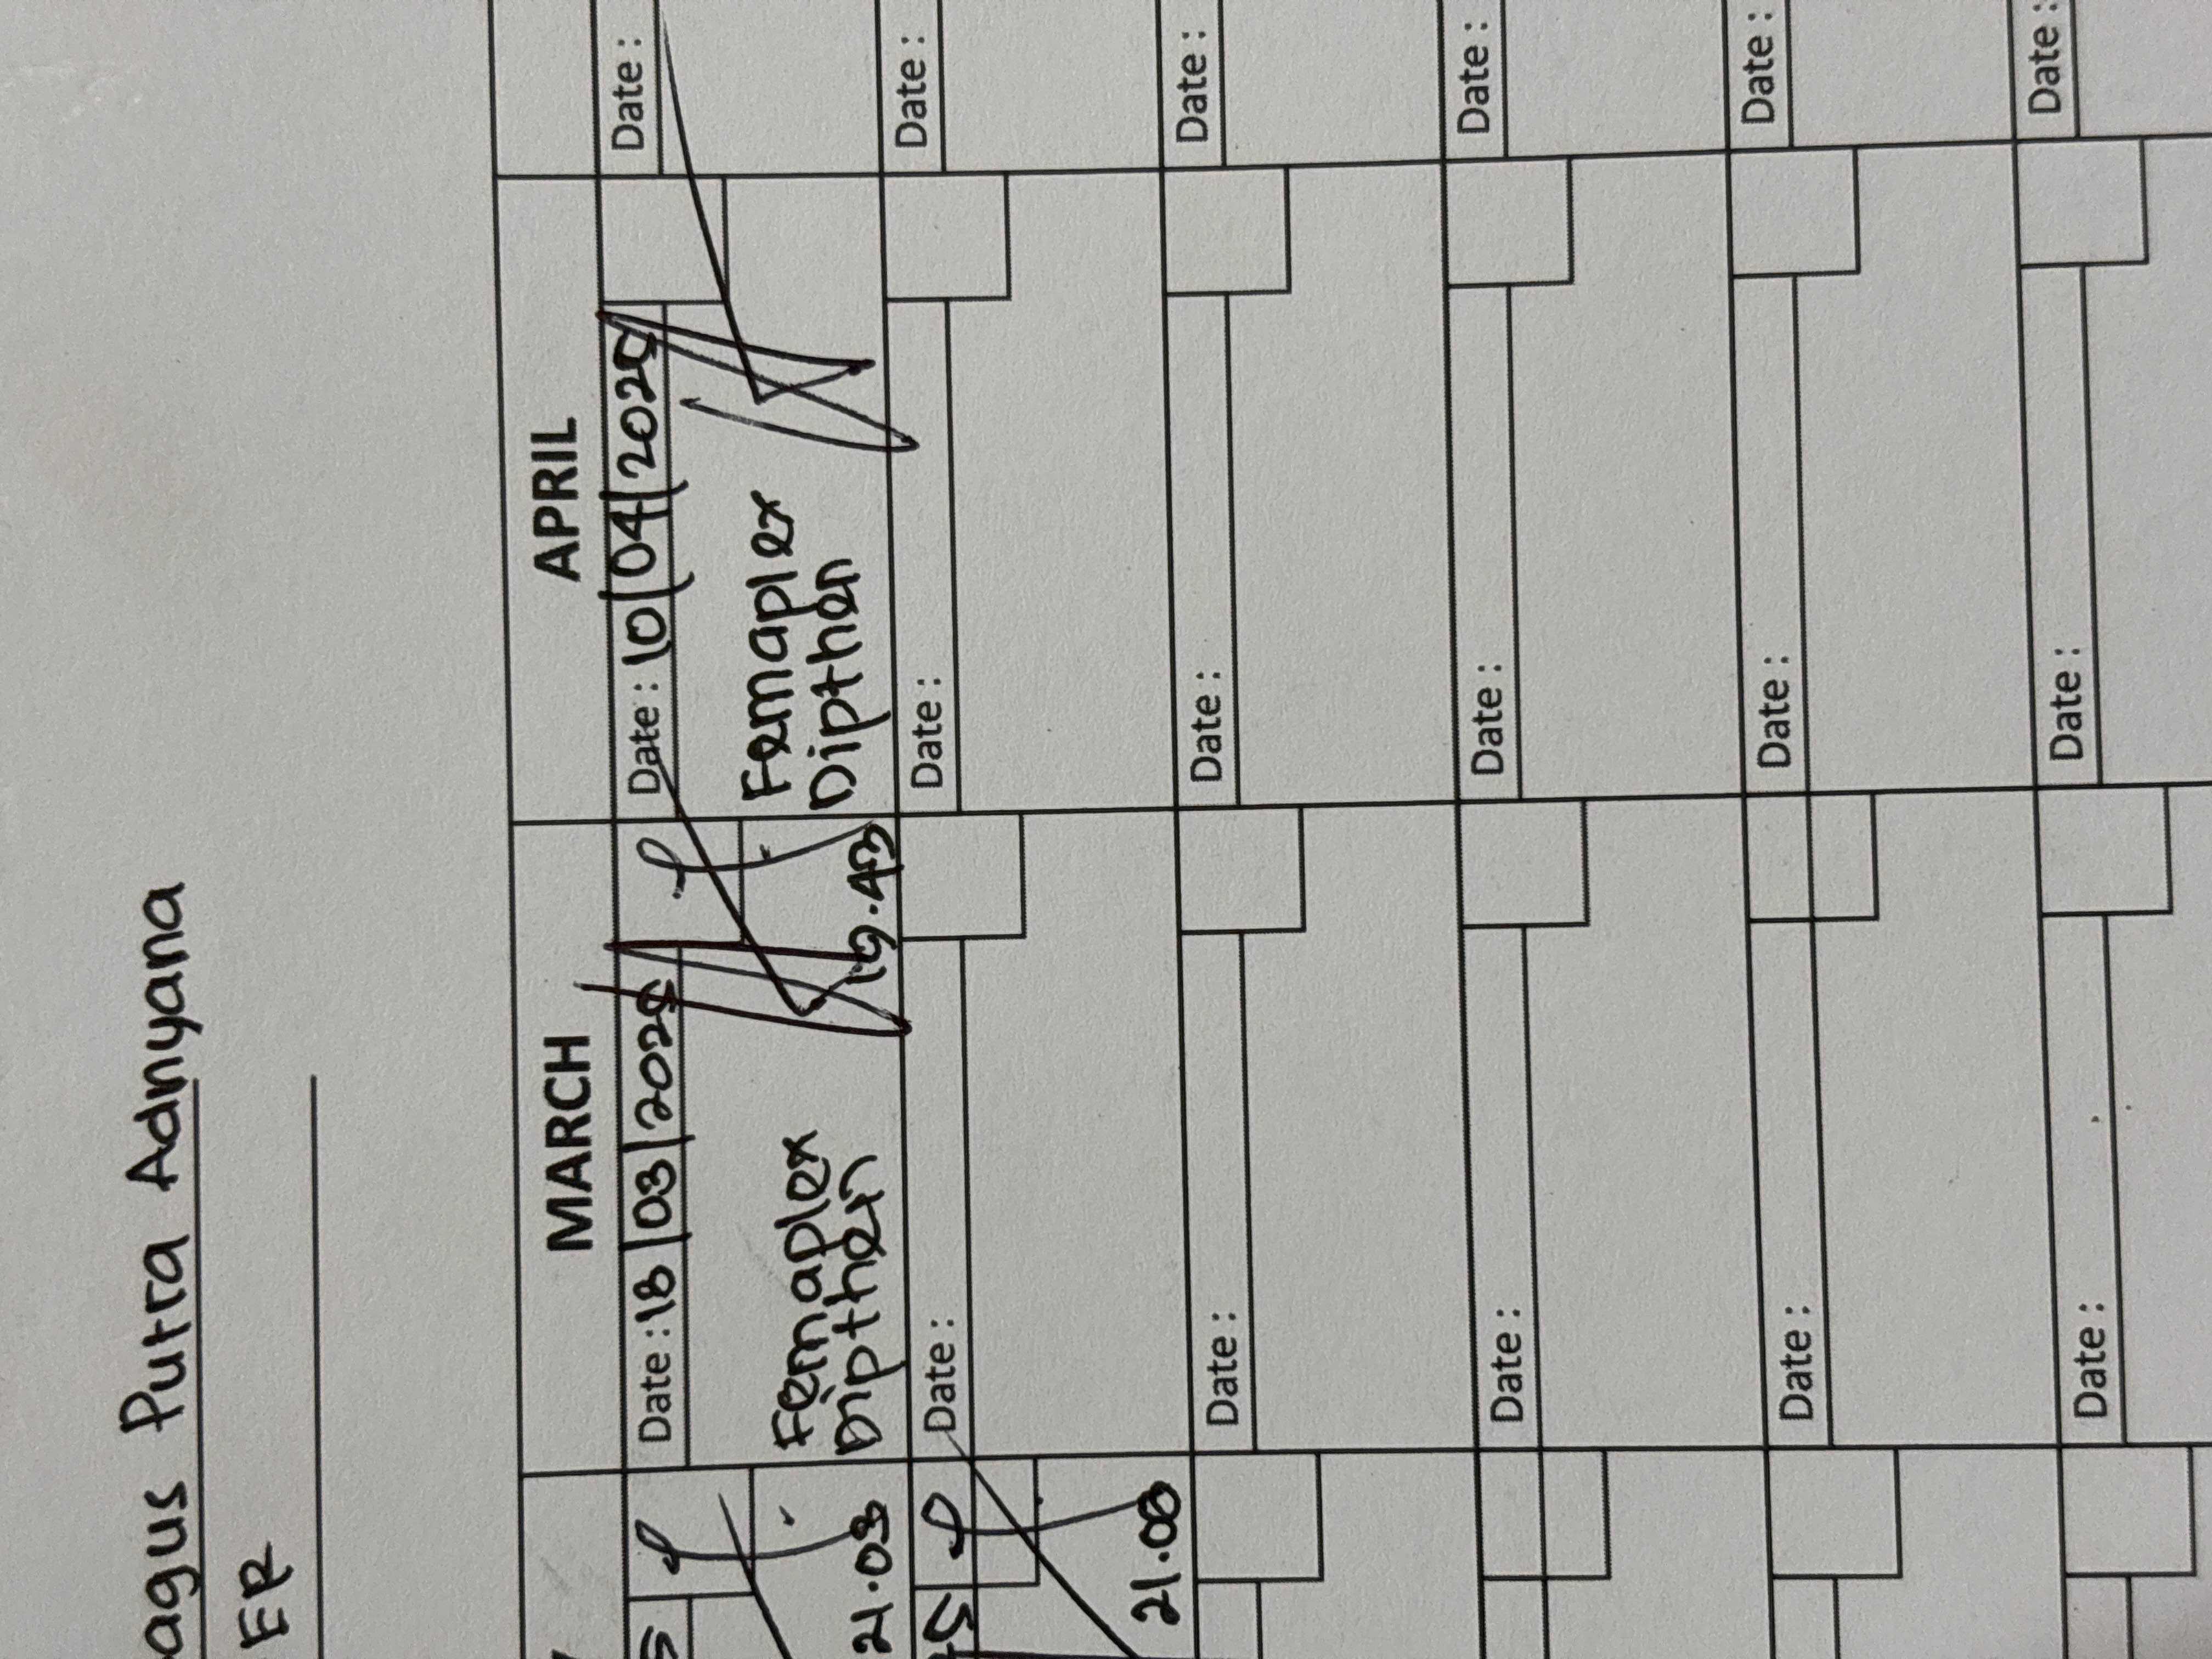 agus Putra Adnyana
ER
MARCH
APRIL
Date : 18/03/2025
Femaplex
Dipthen
19.43
Date : 10/04/2025
Femaplex
Dipthen
Date :
21.03
Date :
Date :
Date :
21.08
Date :
Date :
Date :
Date :
Date :
Date :
Date :
Date :
Date :
Date :
Date :
Date :